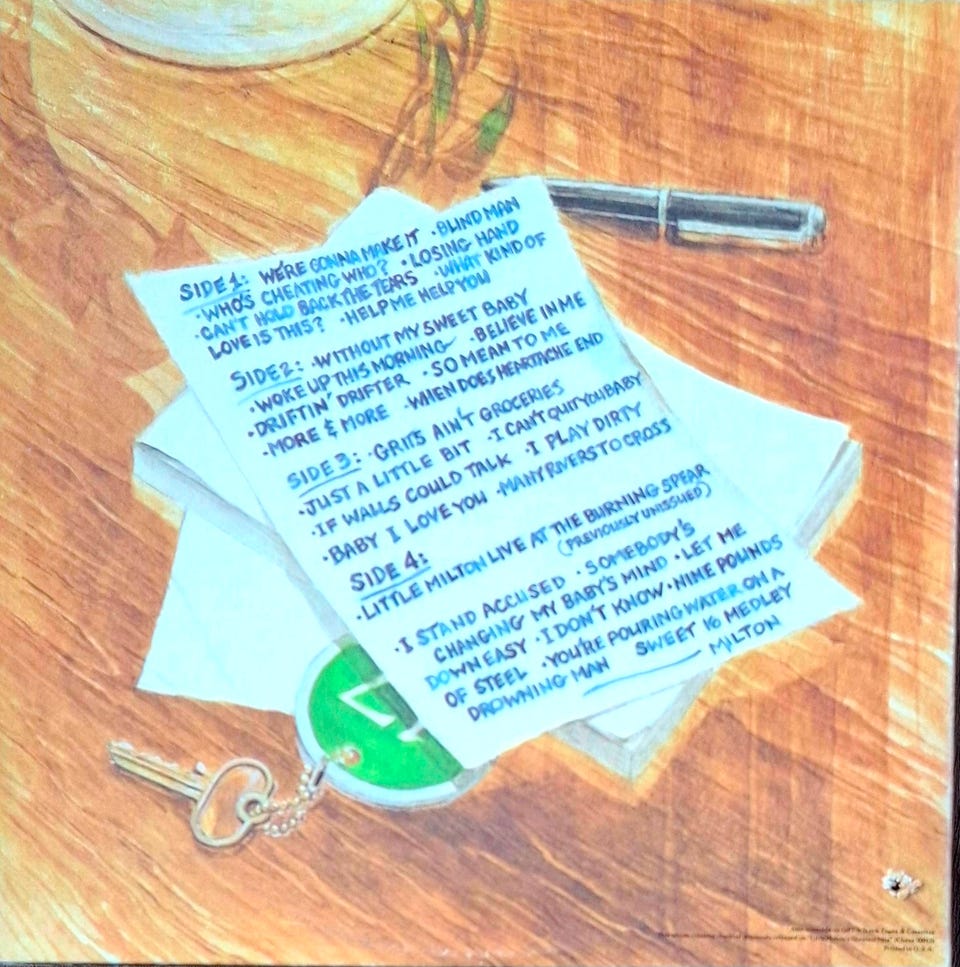 SIDE 1: WE'RE GONNA MAKE IT · BLIND MAN
· WHO'S CHEATING WHO? · LOSING HAND
· CAN'T HOLD BACK THE TEARS · WHAT KIND OF
LOVE IS THIS? · HELP ME HELP YOU
SIDE 2: · WITHOUT MY SWEET BABY
· WOKE UP THIS MORNING · BELIEVE IN ME
· DRIFTIN' DRIFTER · SO MEAN TO ME
· MORE & MORE · WHEN DOES HEARTACHE END
SIDE 3: · GRITS AIN'T GROCERIES
· JUST A LITTLE BIT · I CAN'T QUIT YOU BABY
· IF WALLS COULD TALK · I PLAY DIRTY
· BABY I LOVE YOU · MANY RIVERS TO CROSS
SIDE 4:
· LITTLE MILTON LIVE AT THE BURNING SPEAR
(PREVIOUSLY UNISSUED)
· I STAND ACCUSED · SOMEBODY'S
CHANGING MY BABY'S MIND · LET ME
DOWN EASY · I DON'T KNOW · NINE POUNDS
OF STEEL · YOU'RE POURING WATER ON A
DROWNING MAN SWEET 16 MEDLEY
MILTON
Printed in U.S.A.